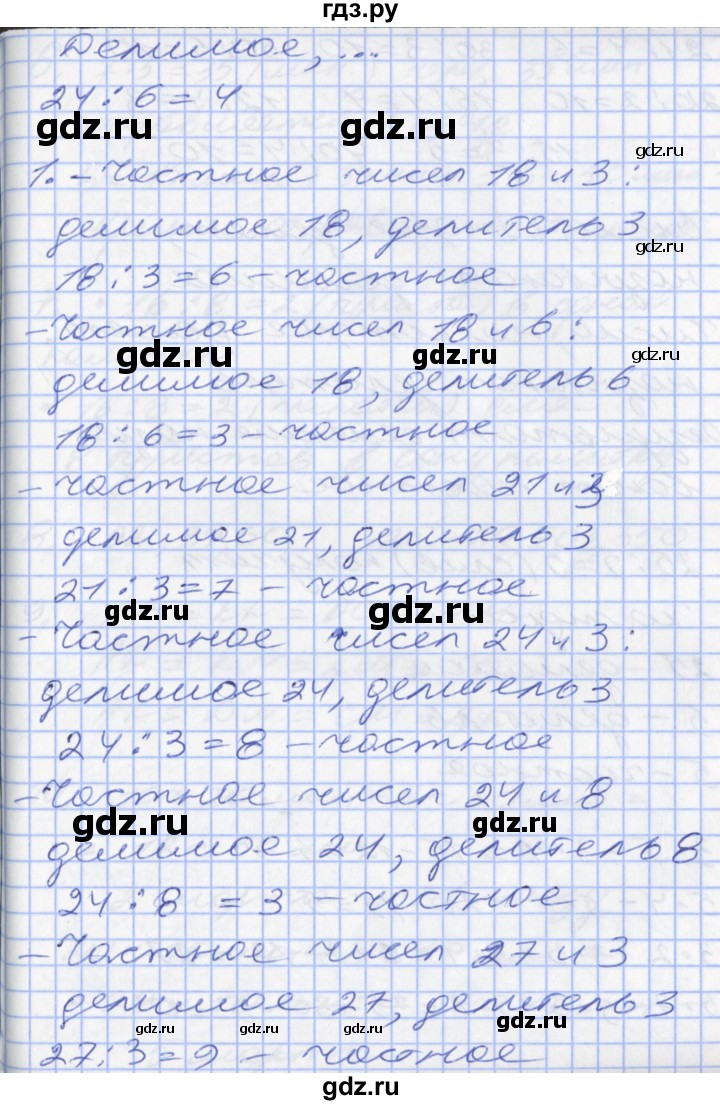 гдз.ру
Делимое, ...
24 : 6 = 4
gdz.ru gdz.ru gdz.ru
1. - Частное чисел 18 и 3 :
делимое 18, делитель 3
18 : 3 = 6 - частное
- Частное чисел 18 и 6 :
gdz.ru gdz.ru gdz.ru
делимое 18, делитель 6
18 : 6 = 3 - частное
- частное чисел 21 и 3
делимое 21, делитель 3
21 : 3 = 7 - частное
gdz.ru gdz.ru gdz.ru
- Частное чисел 24 и 3 :
делимое 24, делитель 3
24 : 3 = 8 - частное
- Частное чисел 24 и 8
gdz.ru gdz.ru gdz.ru
делимое 24, делитель 8
24 : 8 = 3 - частное
- Частное чисел 27 и 3
делимое 27, делитель 3
gdz.ru gdz.ru gdz.ru
27 : 3 = 9 - частное
gdz.ru